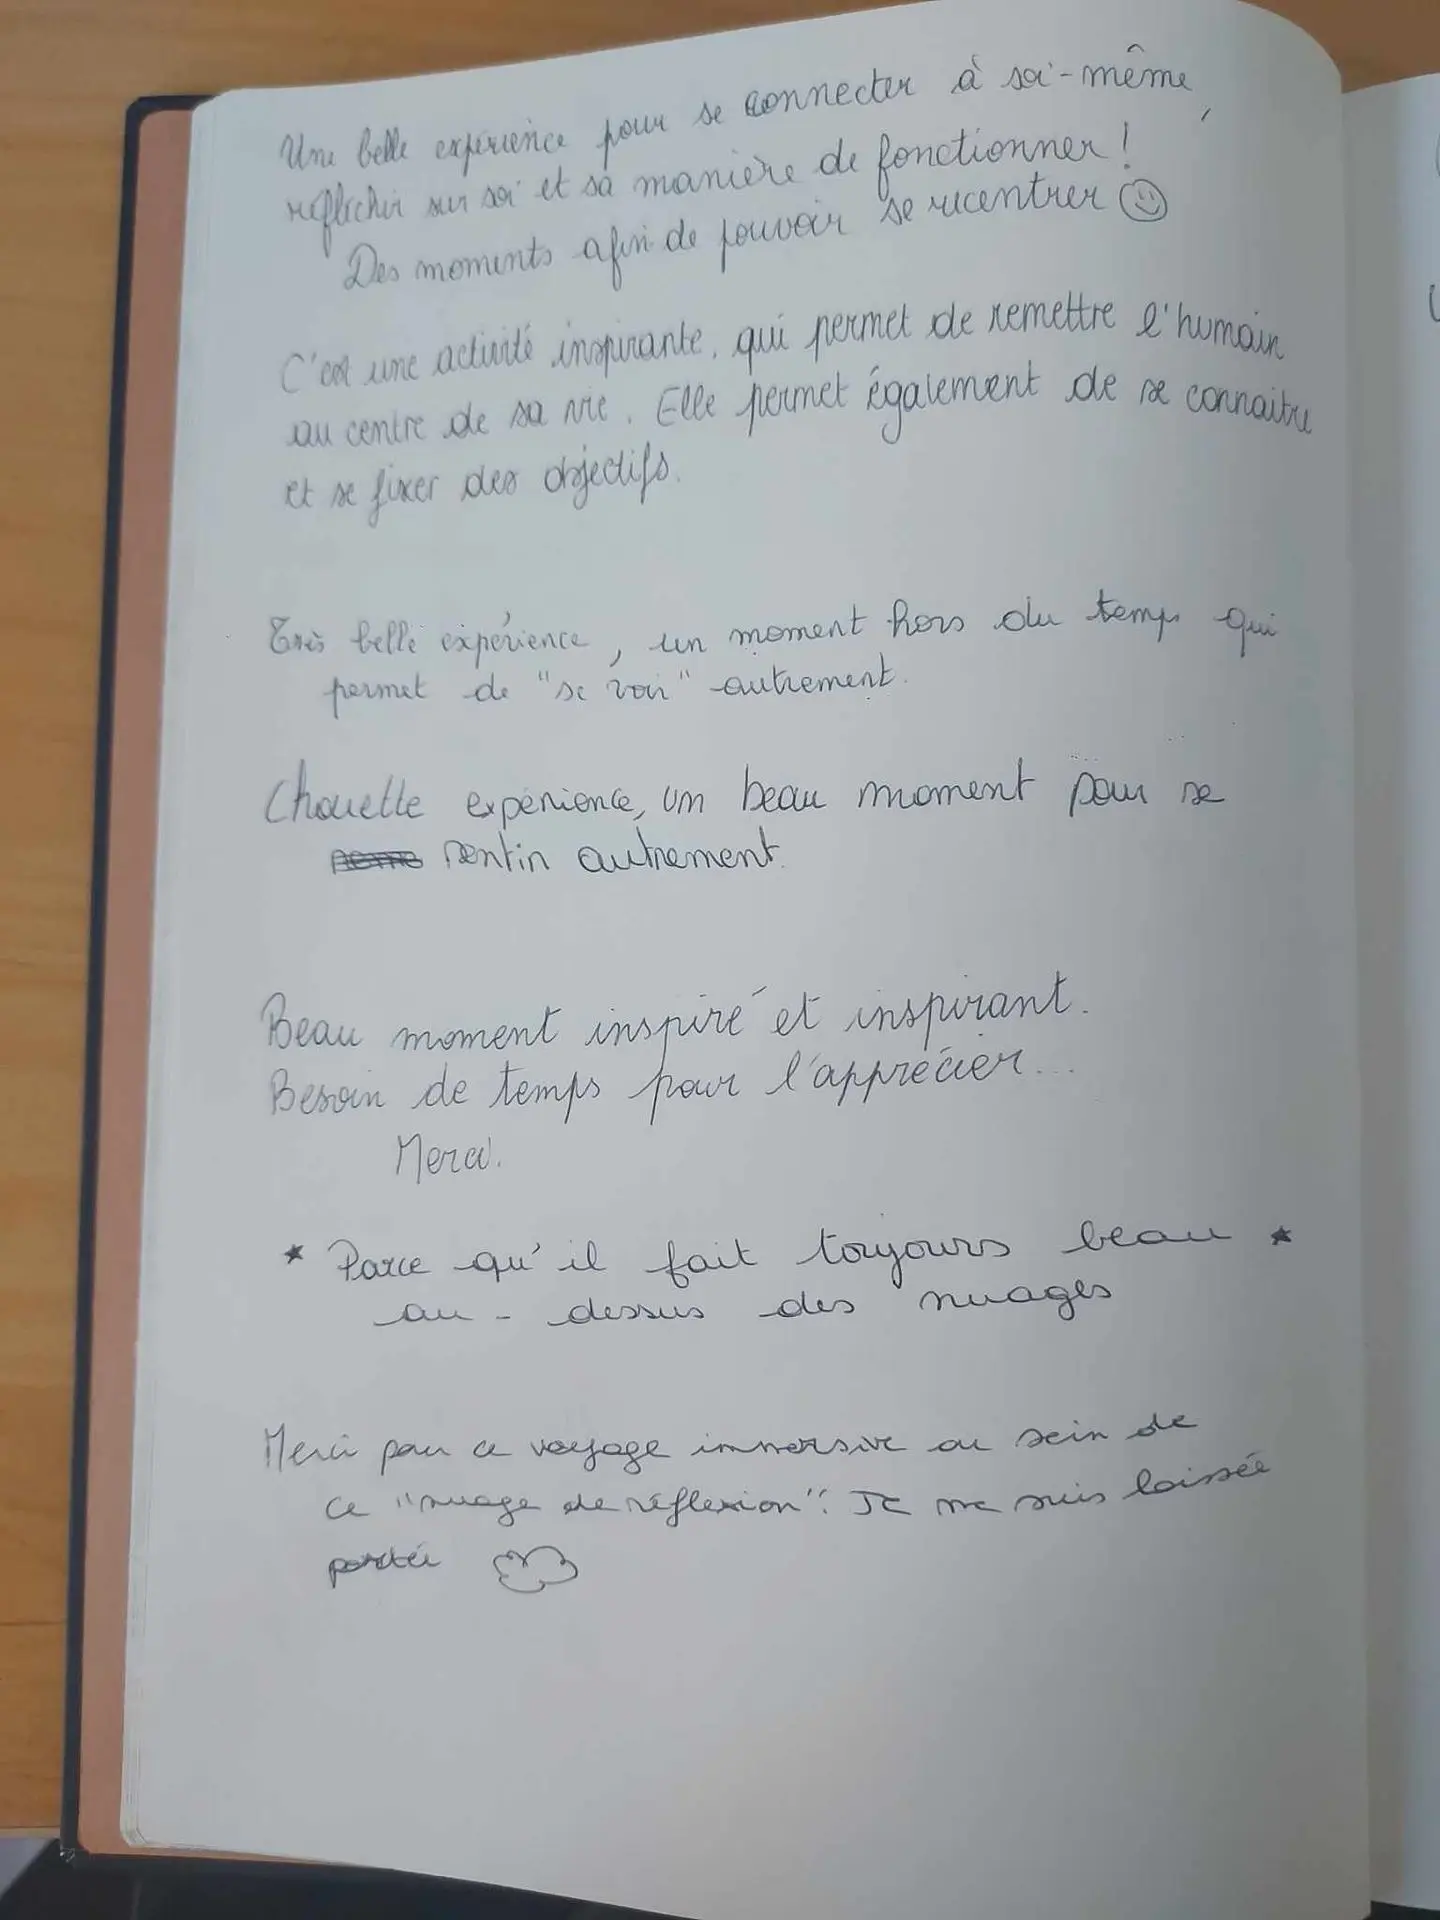 Une belle expérience pour se connecter à soi-même,
réflechir sur soi et sa manière de fonctionner !
Des moments afin de pouvoir se recentrer
C'est une activité inspirante, qui permet de remettre l'humain
au centre de sa vie. Elle permet également de se connaitre
et se fixer des objectifs.
Très belle expérience, un moment hors du temps qui
permet de "se voir" autrement.
Chouette expérience, un beau moment pour se
sentir autrement.
Beau moment inspiré et inspirant.
Besoin de temps pour l'apprécier...
Merci.
* Parce qu'il fait toujours beau *
au-dessus des nuages
Merci pour ce voyage immersive au sein de
ce "nuage de réflexion". Je me suis laissée
portée